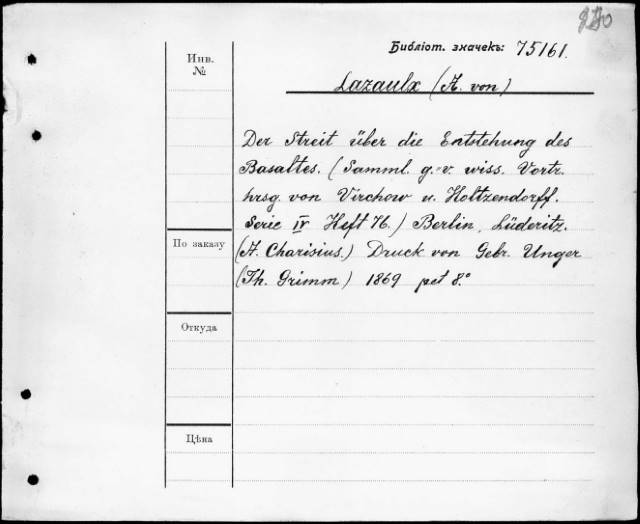 Библіот. значекъ: 75161.
Инв.
№
Lazaulx (A. von)
Der Streit über die Entstehung des
Basaltes. (Samml. g.-v. wiss. Vortr.
hrsg. von Virchow u. Holtzendorff.
Serie IV Heft 76.) Berlin, Lüderitz.
(A. Charisius.) Druck von Gebr. Unger
(Th. Grimm) 1869 pet 8.º
По заказу
Откуда
Цѣна